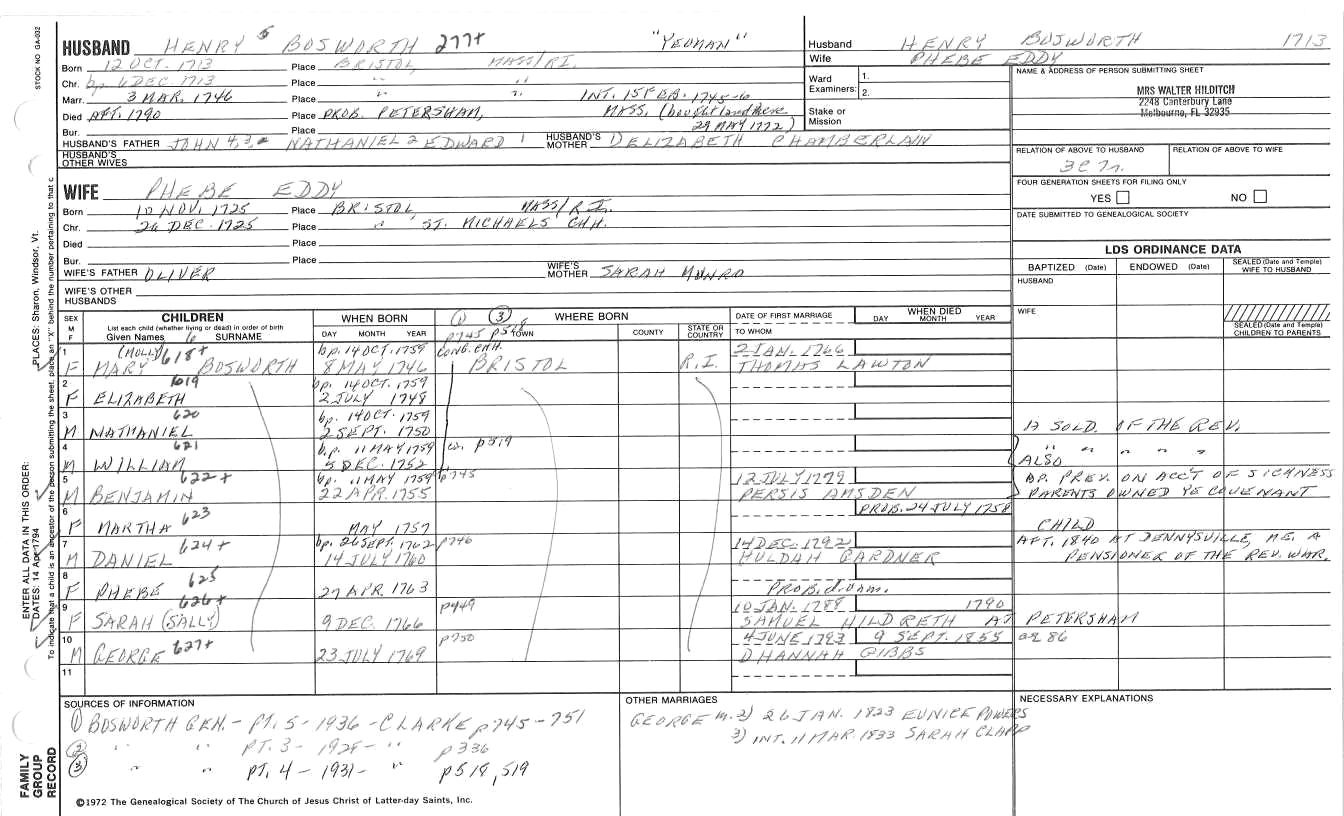 STOCK NO. GA-002
HUSBAND HENRY 5 BOSWORTH 277+ "YEOMAN"
Born 12 OCT. 1713 Place BRISTOL, MASS/RI.
Chr. bp 6 DEC. 1713 Place " "
Marr. 3 MAR. 1746 Place " " INT. 15 FEB. 1745-6
Died AFT. 1790 Place PROB. PETERSHAM, MASS. (bought land there
Bur. Place 29 MAY 1772)
HUSBAND'S FATHER JOHN 4, 3, NATHANIEL 2 EDWARD 1 HUSBAND'S MOTHER ELIZABETH CHAMBERLAIN
HUSBAND'S OTHER WIVES
Husband HENRY BOSWORTH 1713
Wife PHEBE EDDY
Ward Examiners: 1.
2.
Stake or Mission
NAME & ADDRESS OF PERSON SUBMITTING SHEET
MRS WALTER HILDITCH
2248 Canterbury Lane
Melbourne, FL 32935
RELATION OF ABOVE TO HUSBAND RELATION OF ABOVE TO WIFE
FOUR GENERATION SHEETS FOR FILING ONLY
YES NO
DATE SUBMITTED TO GENEALOGICAL SOCIETY
WIFE PHEBE EDDY
Born 10 NOV. 1725 Place BRISTOL, MASS/R.I.
Chr. 26 DEC. 1725 Place " ST. MICHAELS CHH.
Died Place
Bur. Place
WIFE'S FATHER OLIVER WIFE'S MOTHER SARAH MUNRO
WIFE'S OTHER HUSBANDS
LDS ORDINANCE DATA
BAPTIZED (Date) ENDOWED (Date) SEALED (Date and Temple) WIFE TO HUSBAND
HUSBAND
WIFE
SEALED (Date and Temple) CHILDREN TO PARENTS
SEX M F
CHILDREN
List each child (whether living or dead) in order of birth
Given Names 6 SURNAME
WHEN BORN
DAY MONTH YEAR
(1) (3) WHERE BORN
p745 p518 TOWN COUNTY STATE OR COUNTRY
DATE OF FIRST MARRIAGE
TO WHOM
WHEN DIED
DAY MONTH YEAR
1 (MOLLY) 618+ bp. 14 OCT. 1759 CONG. CHH. 2 JAN. 1766
F MARY BOSWORTH 8 MAY 1746 BRISTOL R.I. THOMAS LAWTON
2 619 bp. 14 OCT. 1759
F ELIZABETH 2 JULY 1748
3 620 bp. 14 OCT. 1759
M NATHANIEL 2 SEPT. 1750 A SOLD. OF THE REV.
4 621 b.p. 11 MAY 1759 p519 " " " "
M WILLIAM 5 DEC. 1752 ALSO
5 622+ bp. 11 MAY 1759 p745 12 JULY 1779 BP. PREV. ON ACC'T OF SICKNESS
M BENJAMIN 22 APR. 1755 PERSIS AMSDEN PARENTS OWNED YE COVENANT
6 623 PROB. 24 JULY 1758
F MARTHA MAY 1757 CHILD
7 624+ bp. 26 SEPT. 1762 p746 14 DEC. 1792 AFT. 1840 AT DENNYSVILLE, ME. A
M DANIEL 14 JULY 1760 HULDAH GARDNER PENSIONER OF THE REV. WAR.
8 625
F PHEBE 27 APR. 1763 PROB. d. unm.
9 626+ p749 10 JAN. 1788 1790
F SARAH (SALLY) 9 DEC. 1766 SAMUEL HILDRETH AT PETERSHAM
10 627+ p750 4 JUNE 1793 9 SEPT. 1855 ae 86
M GEORGE 23 JULY 1769 HANNAH GIBBS
11
SOURCES OF INFORMATION
(1) BOSWORTH GEN. - PT. 5 - 1936 - CLARKE p745-751
(2) " " PT. 3 - 1928 - " p336
(3) " " PT. 4 - 1931 - " p518, 519
OTHER MARRIAGES
GEORGE m. 2) 26 JAN. 1823 EUNICE POWERS
3) INT. 11 MAR. 1833 SARAH CLAPP
NECESSARY EXPLANATIONS
©1972 The Genealogical Society of The Church of Jesus Christ of Latter-day Saints, Inc.
FAMILY GROUP RECORD
ENTER ALL DATA IN THIS ORDER:
DATES: 14 Apr 1794
PLACES: Sharon, Windsor, Vt.
To indicate that a child is an ancestor of the person submitting the sheet, place an "X" behind the number pertaining to that c